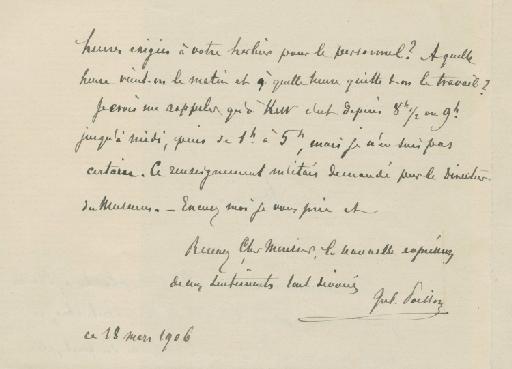 heures exigées à votre herbier pour le personnel? A quelle
heure vient-on le matin et à quelle heure quitte-t-on le travail?
Je crois me rappeler qu'à Kew c'est depuis 8h 1/2 ou 9h
jusqu'à midi, puis de 1h à 5h, mais je n'en suis pas
certain. Ce renseignement m'était demandé par le Directeur
du Museum. — Excusez moi je vous prie et —
Recevez Cher Monsieur, la nouvelle expression
de mes sentiments tout dévoués
Jul. Poisson
ce 18 mars 1906